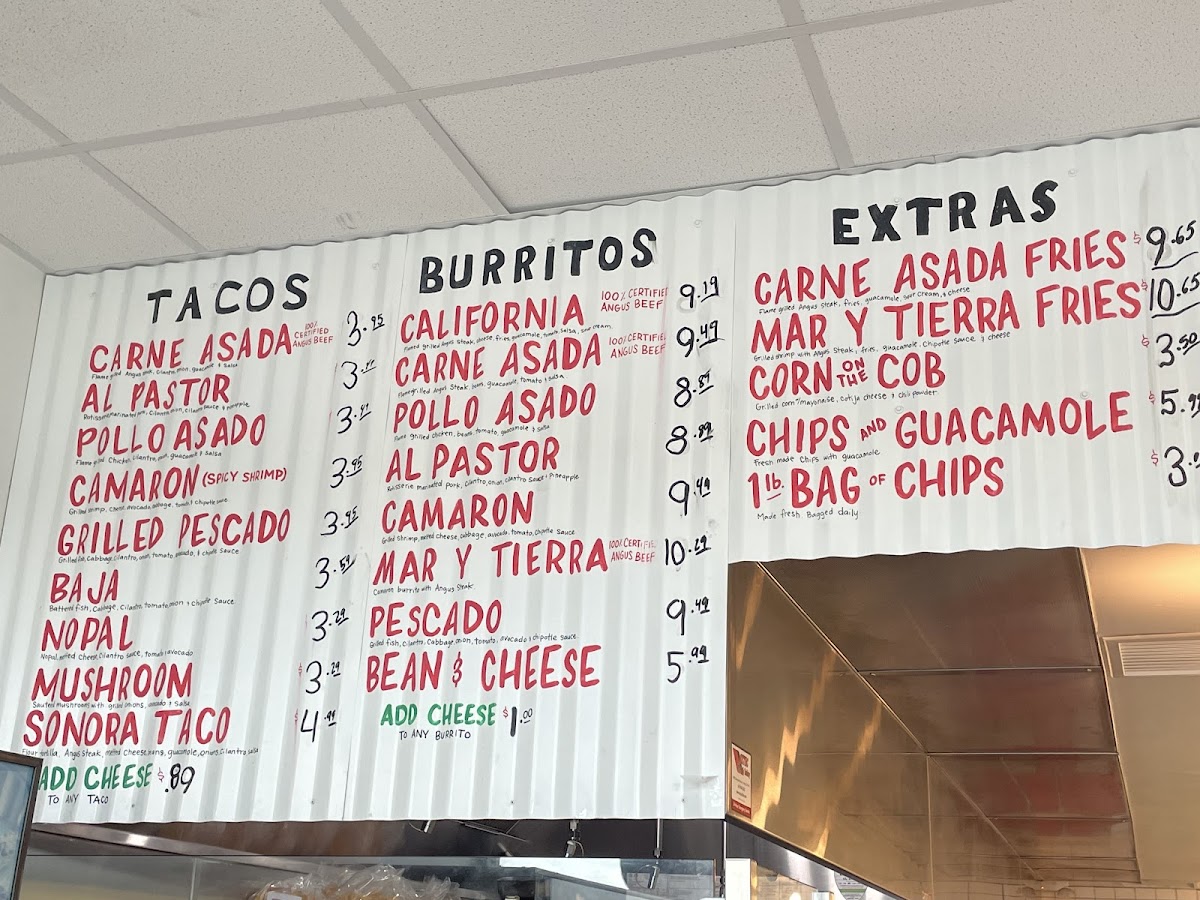 TACOS
CARNE ASADA 100% CERTIFIED ANGUS BEEF 3.95
AL PASTOR
POLLO ASADO
Flame grilled Chicken, Cilantro, onion, guacamole & salsa
CAMARON (SPICY SHRIMP) 3.95
Grilled shrimp, cheese, avocado, cabbage, tomato & chipotle sauce
GRILLED PESCADO 3.95
Grilled fish, Cabbage, Cilantro, onion, tomato, avocado, & chipotle Sauce
BAJA 3.59
Battered fish, Cabbage, Cilantro, tomato, onion & Chipotle Sauce
NOPAL 3.29
Nopal, melted Cheese, Cilantro sauce, tomato & avocado
MUSHROOM $3.29
Sauteed Mushrooms with grilled onions, avocado & Salsa
SONORA TACO $4.99
Flour tortilla, Angus Steak, melted Cheese, beans, guacamole, onions, Cilantro, salsa
ADD CHEESE $.89
TO ANY TACO
BURRITOS
CALIFORNIA 100% CERTIFIED ANGUS BEEF 9.19
Flame grilled Angus Steak, cheese, fries, guacamole, tomato, salsa, sour cream
CARNE ASADA 100% CERTIFIED ANGUS BEEF 9.49
Flame grilled Angus Steak, beans, guacamole, tomato & salsa
POLLO ASADO 8.89
Flame grilled chicken, beans, tomato, guacamole & salsa
AL PASTOR 8.89
Rotisserie marinated pork, cilantro, onion, cilantro sauce & pineapple
CAMARON 9.49
Grilled shrimp, melted cheese, cabbage, avocado, tomato, chipotle sauce
MAR Y TIERRA 100% CERTIFIED ANGUS BEEF 10.29
Camaron burrito with Angus Steak
PESCADO 9.49
Grilled fish, cilantro, Cabbage, onion, tomato, avocado & chipotle sauce
BEAN & CHEESE 5.99
ADD CHEESE $1.00
TO ANY BURRITO
EXTRAS
CARNE ASADA FRIES $9.65
Flame grilled Angus steak, fries, guacamole, sour cream, & cheese
MAR Y TIERRA FRIES $10.65
Grilled shrimp with Angus Steak, fries, guacamole, Chipotle sauce & cheese
CORN ON THE COB $3.50
Grilled corn, mayonnaise, cotija cheese & chili powder
CHIPS AND GUACAMOLE $5.99
Fresh made Chips with guacamole
1 lb. BAG OF CHIPS $3.
Made fresh Bagged daily